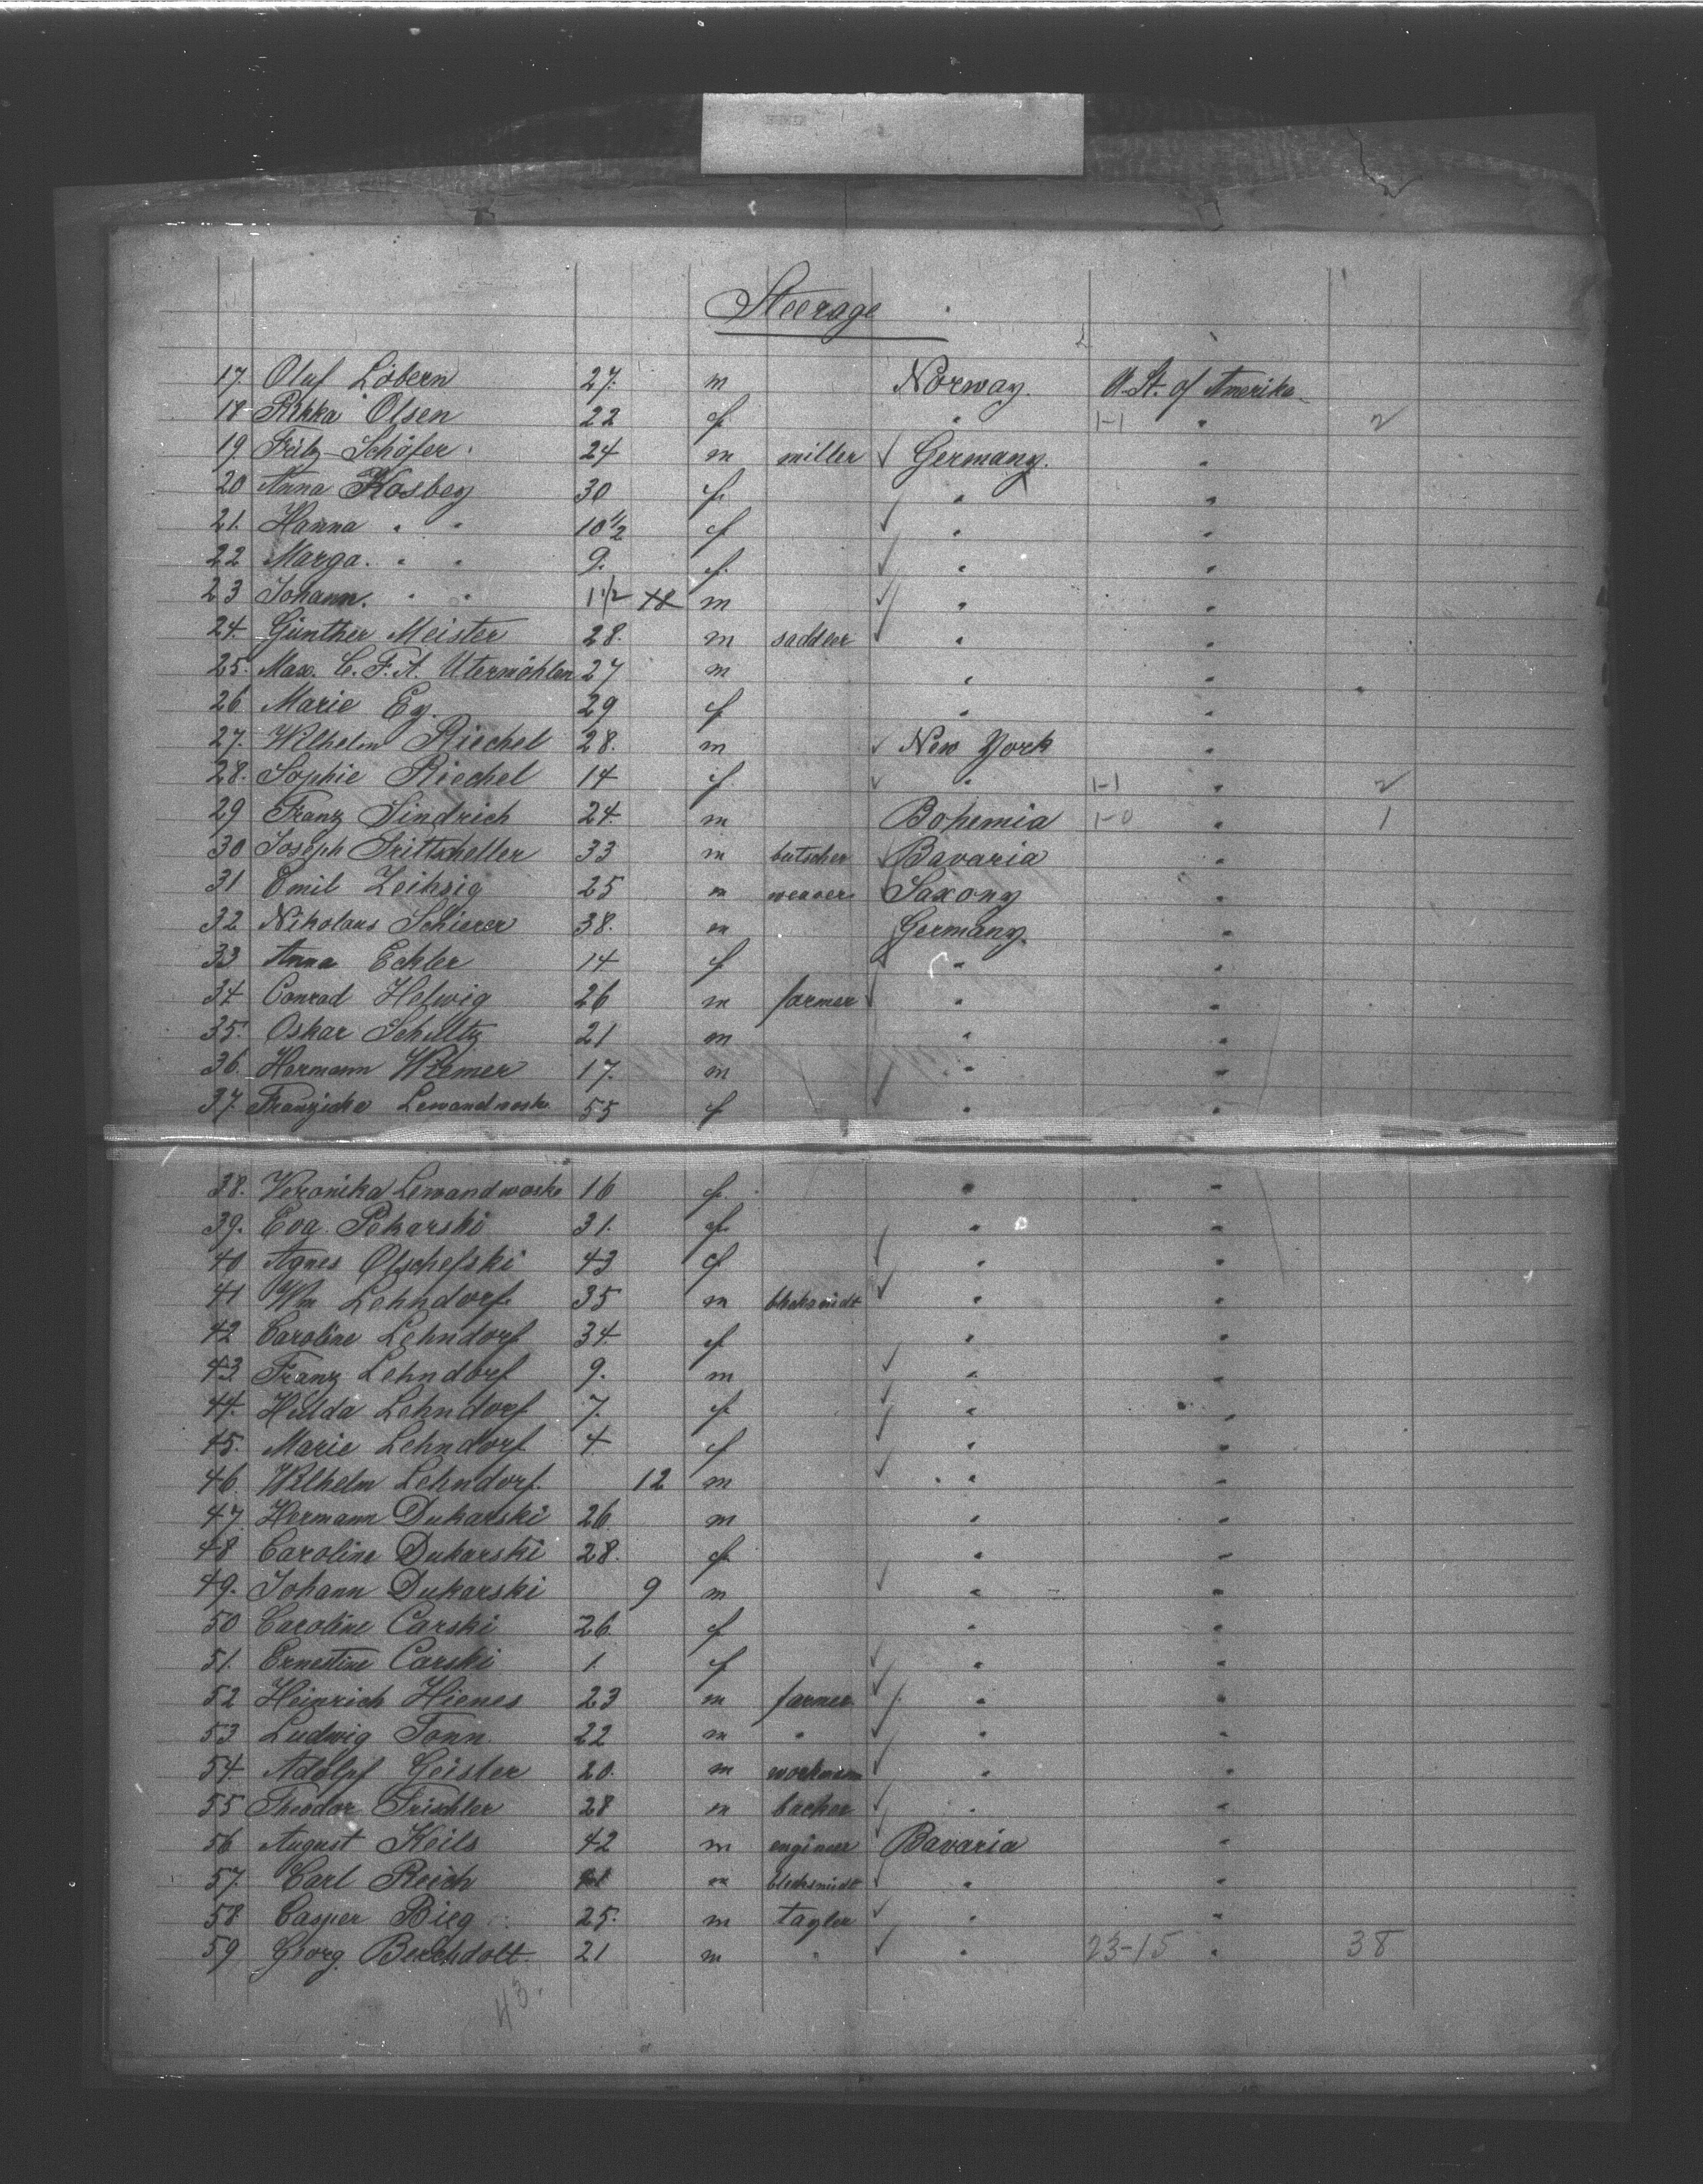 Steerage
17. Oluf Löbern 27. m Norway. U. St. of Amerika
18 Rikka Olsen 22 f " 1-1 " 2
19. Fritz Schäfer. 24 m miller ✓ Germany. "
20 Anna Kosbeg 30 f. ✓ " "
21. Hanna " " 10 1/2 f ✓ " "
22 Marga. " " 9. f. ✓ " "
23 Johann. " " 1 1/2 m ✓ " "
24. Günther Meister 28. m saddler ✓ " "
25. Max. C. F. A. Utermöhlen 27 m " "
26. Marie Ey. 29 f " "
27. Wilhelm Riechel 28. m ✓ New York "
28. Sophie Riechel 14 f. ✓ " 1-1 " 2
29 Franz Sindrich 24. m Bohemia 1-0 " 1
30 Joseph Trittscheller 33 m butscher Bavaria "
31 Emil Leibsig 25 m weaver Saxony "
32 Nikolaus Schierer 38. m Germany. "
33 Anna Eckler 14 f " "
34. Conrad Helwig 26 m farmer ✓ " "
35. Oskar Schultz 21 m " "
36. Hermann Wiemer 17. m " "
37. Franziska Lewandwoske 55 f ✓ " "
38. Veronika Lewandwoske 16 f. " "
39. Eva Pekarski 31. f. " "
40 Agnes Olschefski 43 f ✓ " "
41 Wm Lehndorf. 35 m blacksmidt ✓ " "
42 Caroline Lehndorf 34. f " "
43 Franz Lehndorf 9. m ✓ " "
44. Hulda Lehndorf 7. f. ✓ " "
45. Marie Lehndorf 4 f ✓ " "
46. Wilhelm Lehndorf. 12 m ✓ " "
47. Hermann Dukarski 26. m " "
48 Caroline Dukarski 28. f. " "
49. Johann Dukarski 9 m ✓ " "
50 Caroline Carski 26. f " "
51. Ernestine Carski 1. f ✓ " "
52 Heinrich Hienes 23 m farmer. ✓ " "
53 Ludwig Tonn. 22 m " ✓ " "
54. Adolpf Geister 20. m workmann ✓ " "
55 Theodor Trischler 28 m backer ✓ " "
56 August Keils 42 m engineer Bavaria "
57. Carl Reich m blcksmidt ✓ " "
58. Casper Bieg 25. m tayler ✓ " "
59 Georg. Berchdolt. 21 m " ✓ " 23-15 " 38
43.